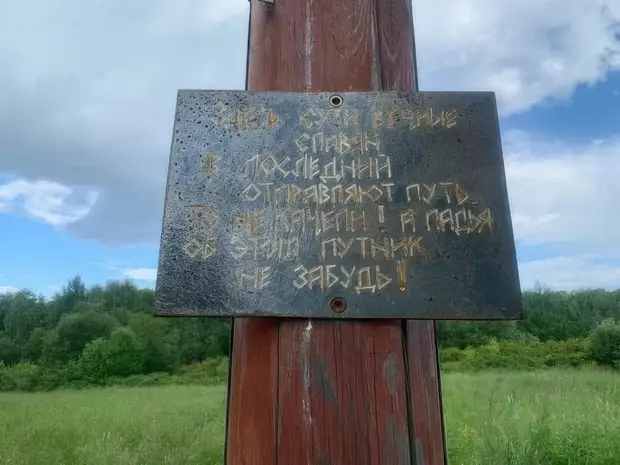 ЗДЕСЬ СУТИ ВЕЧНЫЕ
СЛАВЯН
В ПОСЛЕДНИЙ
ОТПРАВЛЯЮТ ПУТЬ.
ТО КАЧЕЛИ! А ЛАДЬЯ
ОБ ЭТОМ ПУТНИК
НЕ ЗАБУДЬ!